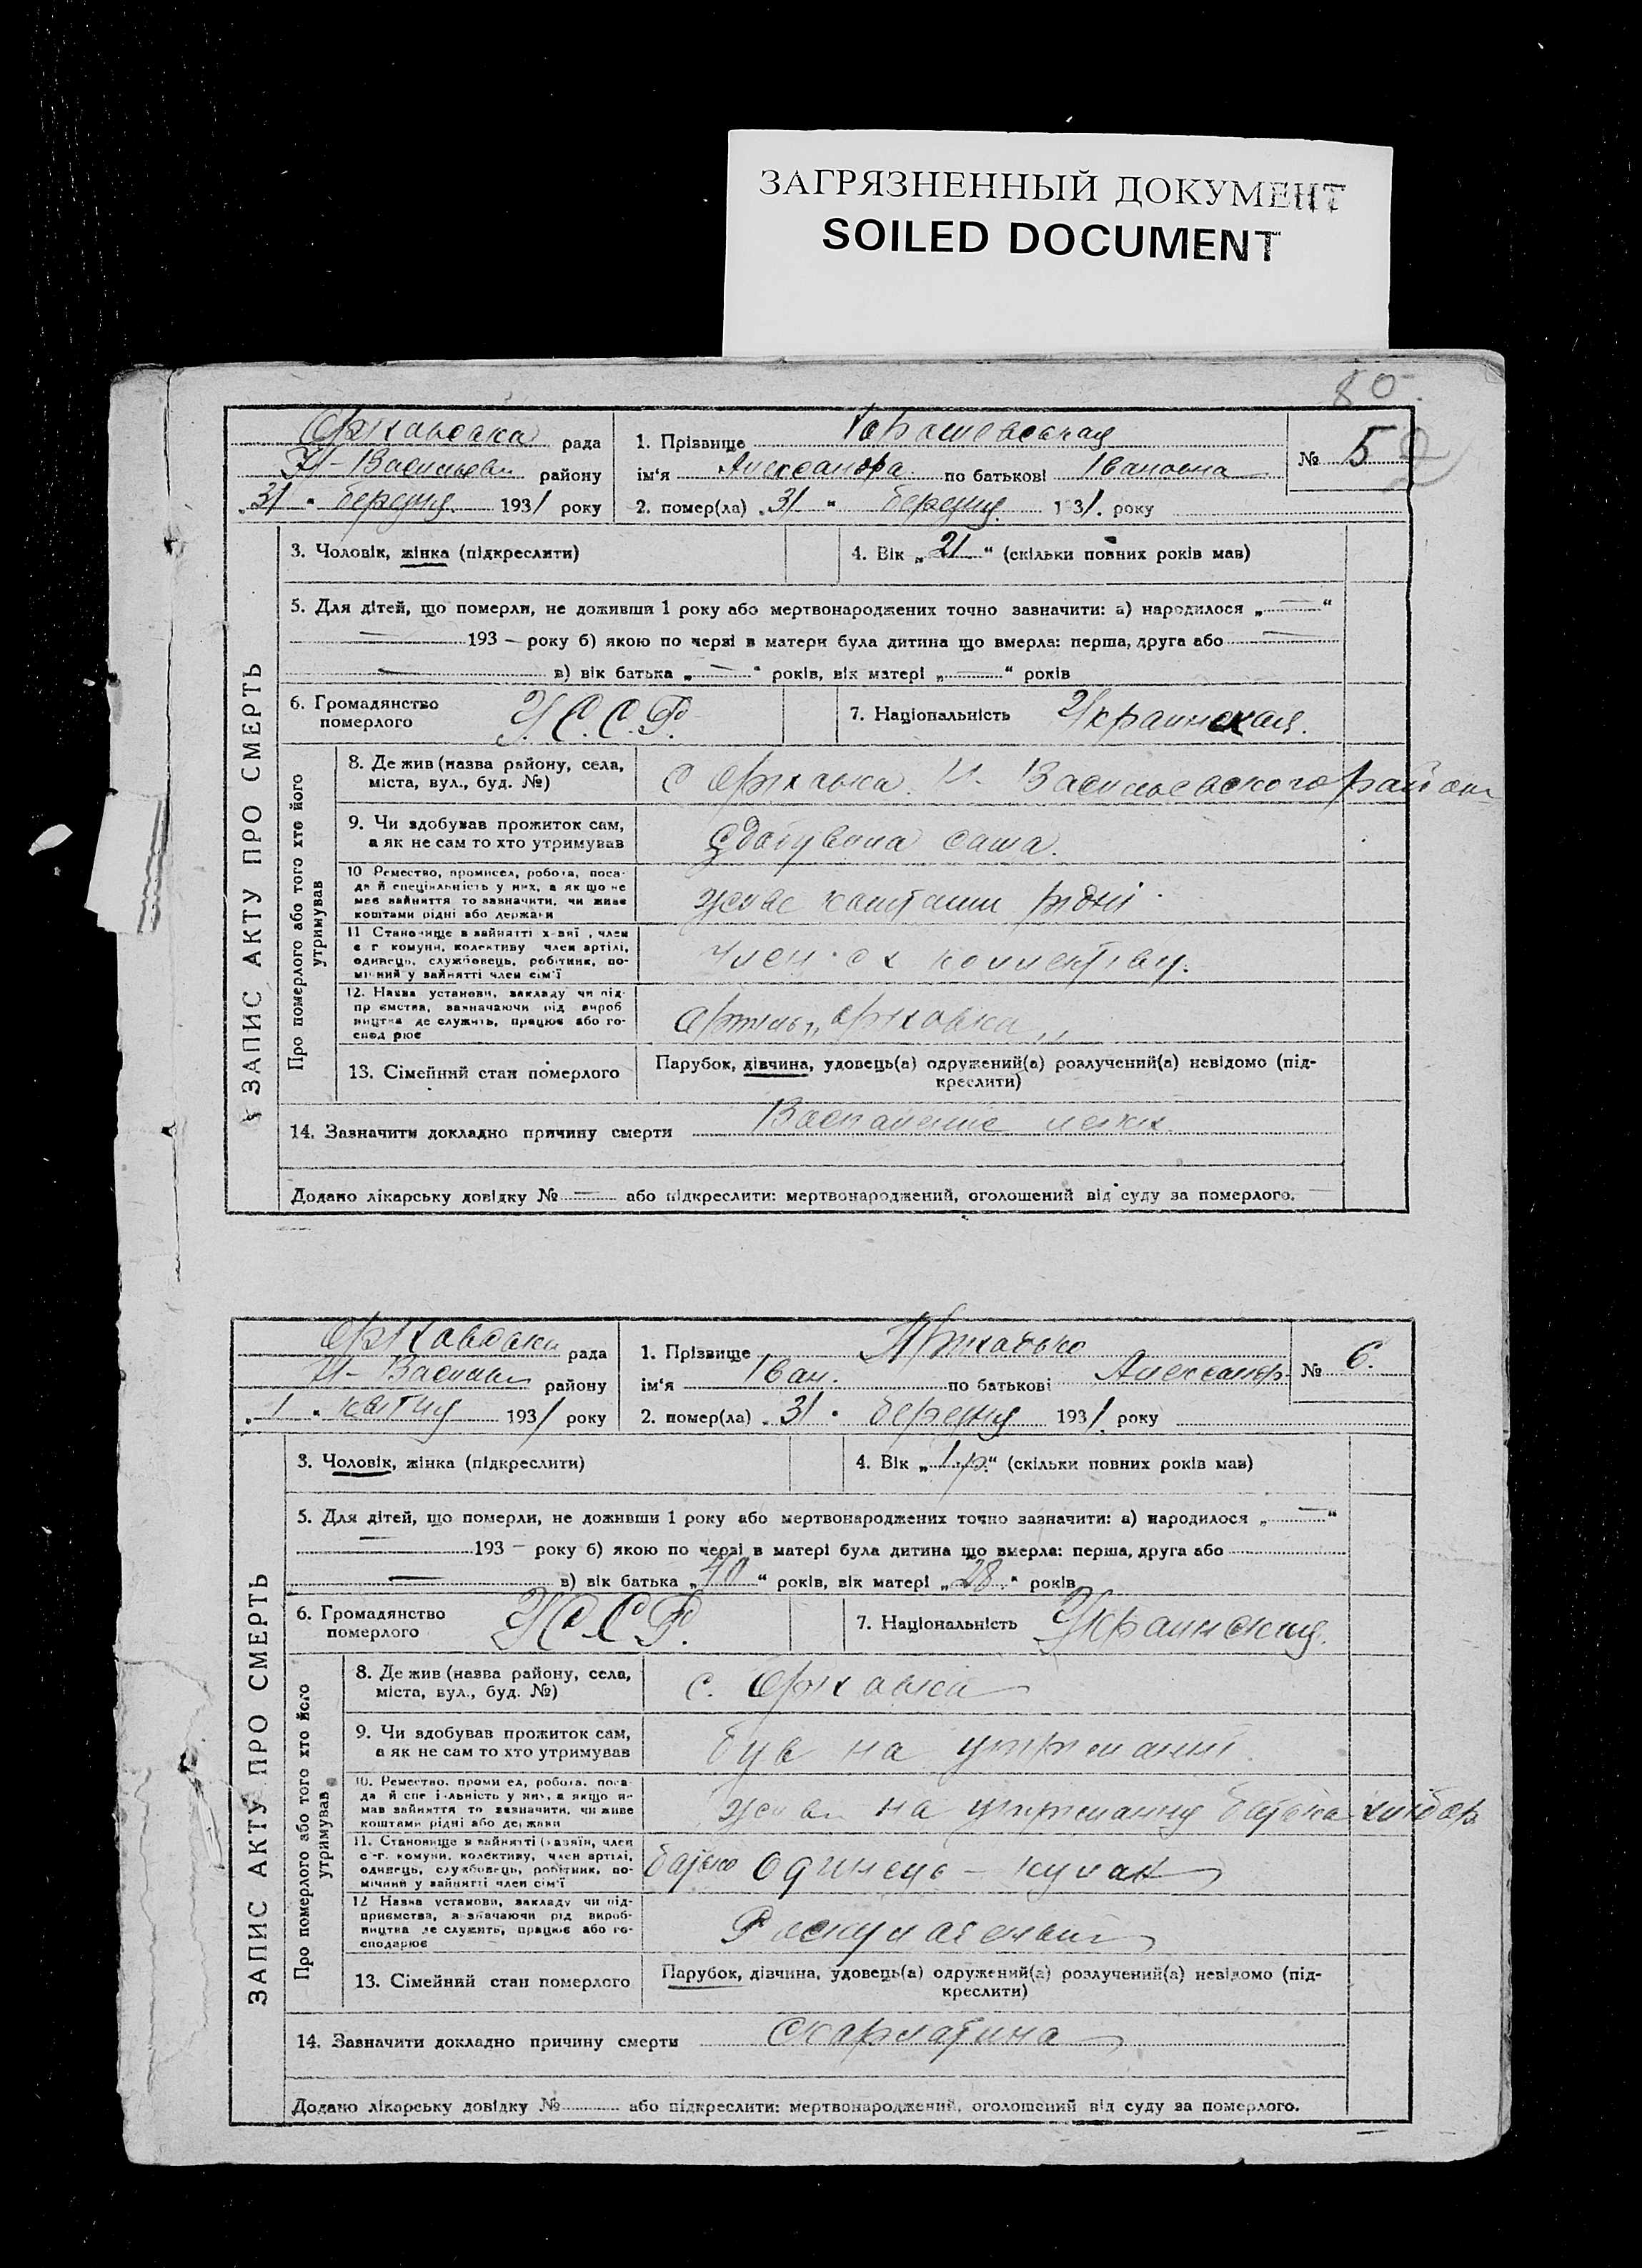 ЗАГРЯЗНЕННЫЙ ДОКУМЕНТ
SOILED DOCUMENT
80
рада
Н-Васильев району
31 " березня 1931 року
1. Прізвище
ім'я Александра по батькові Івановна
2. помер(ла) 31 " березня 1931. року
№ 5
ЗАПИС АКТУ ПРО СМЕРТЬ
3. Чоловік, жінка (підкреслити)
4. Вік „21“ (скільки повних років мав)
5. Для дітей, що померли, не доживши 1 року або мертвонароджених точно зазначити: а) народилося „—“
— 193 — року б) якою по черзі в матери була дитина що вмерла: перша, друга або —
— в) вік батька „—“ років, вік матері „ “ років
6. Громадянство померлого У.С.С.Р.
7. Національність Украинская.
Про померлого або того хто його утримував
8. Де жив (назва району, села, міста, вул., буд. №)
с. Н. Васильевского район
9. Чи здобував прожиток сам, а як не сам то хто утримував
здобувала сама.
10 Ремество, промисел, робота, поса-
да й спеціяльність у них, а як що не
мав зайняття то зазначити, чи живе
коштами рідні або держави
живе коштами рідні
11 Становище в зайнятті х-зяї , член
с г комуни, колективу член артілі,
одинець, службовець, робітник, по-
мічний у зайнятті член сім'ї
член с х коллективу.
12. Назва установи, закладу чи під-
пр ємства, зазначаючи рід вироб
ництва де служить, працює або го-
спод рює
Артиль
13. Сімейний стан померлого
Парубок, дівчина, удовець(а) одружений(а) розлучений(а) невідомо (під-
креслити)
14. Зазначити докладно причину смерти Воспаление легких
Додано лікарську довідку № — або підкреслити: мертвонароджений, оголошений від суду за померлого.
рада
Н-Василь району
1 " квітня 1931 року
1. Прізвище
ім'я Іван. по батькові Александр
2. помер(ла) 31 " березня 1931. року
№ 6.
ЗАПИС АКТУ ПРО СМЕРТЬ
3. Чоловік, жінка (підкреслити)
4. Вік „1 р.“ (скільки повних років мав)
5. Для дітей, що померли, не доживши 1 року або мертвонароджених точно зазначити: а) народилося „—“
— 193 — року б) якою по черзі в матері була дитина що вмерла: перша, друга або
— в) вік батька „ “ років, вік матері „28“ років
6. Громадянство померлого УССР.
7. Національність Украинская.
Про померлого або того хто його утримував
8. Де жив (назва району, села, міста, вул., буд. №)
с.
9. Чи здобував прожиток сам, а як не сам то хто утримував
був на утриманні
10. Ремество, проми ел, робота, поса-
да й спе і-льність у них, а якщо не
мав зайняття то зазначити, чи живе
коштами рідні або держави
на утриманню батька хлібор
11. Становище в зайнятті (хазяїн, член
с -г. комуни, колективу, член артілі,
одинець, службовець, робітник, по-
мічний у зайнятті член сім'ї
батько одинець - кулак
12 Назва установи, закладу чи під-
приємства, зазначаючи рід вироб-
ництва де служить, працює або го-
сподарює
Роскулаченый
13. Сімейний стан померлого
Парубок, дівчина, удовець(а) одружений(а) розлучений(а) невідомо (під-
креслити)
14. Зазначити докладно причину смерти Скарлатина
Додано лікарську довідку № або підкреслити: мертвонароджений, оголошений від суду за померлого.